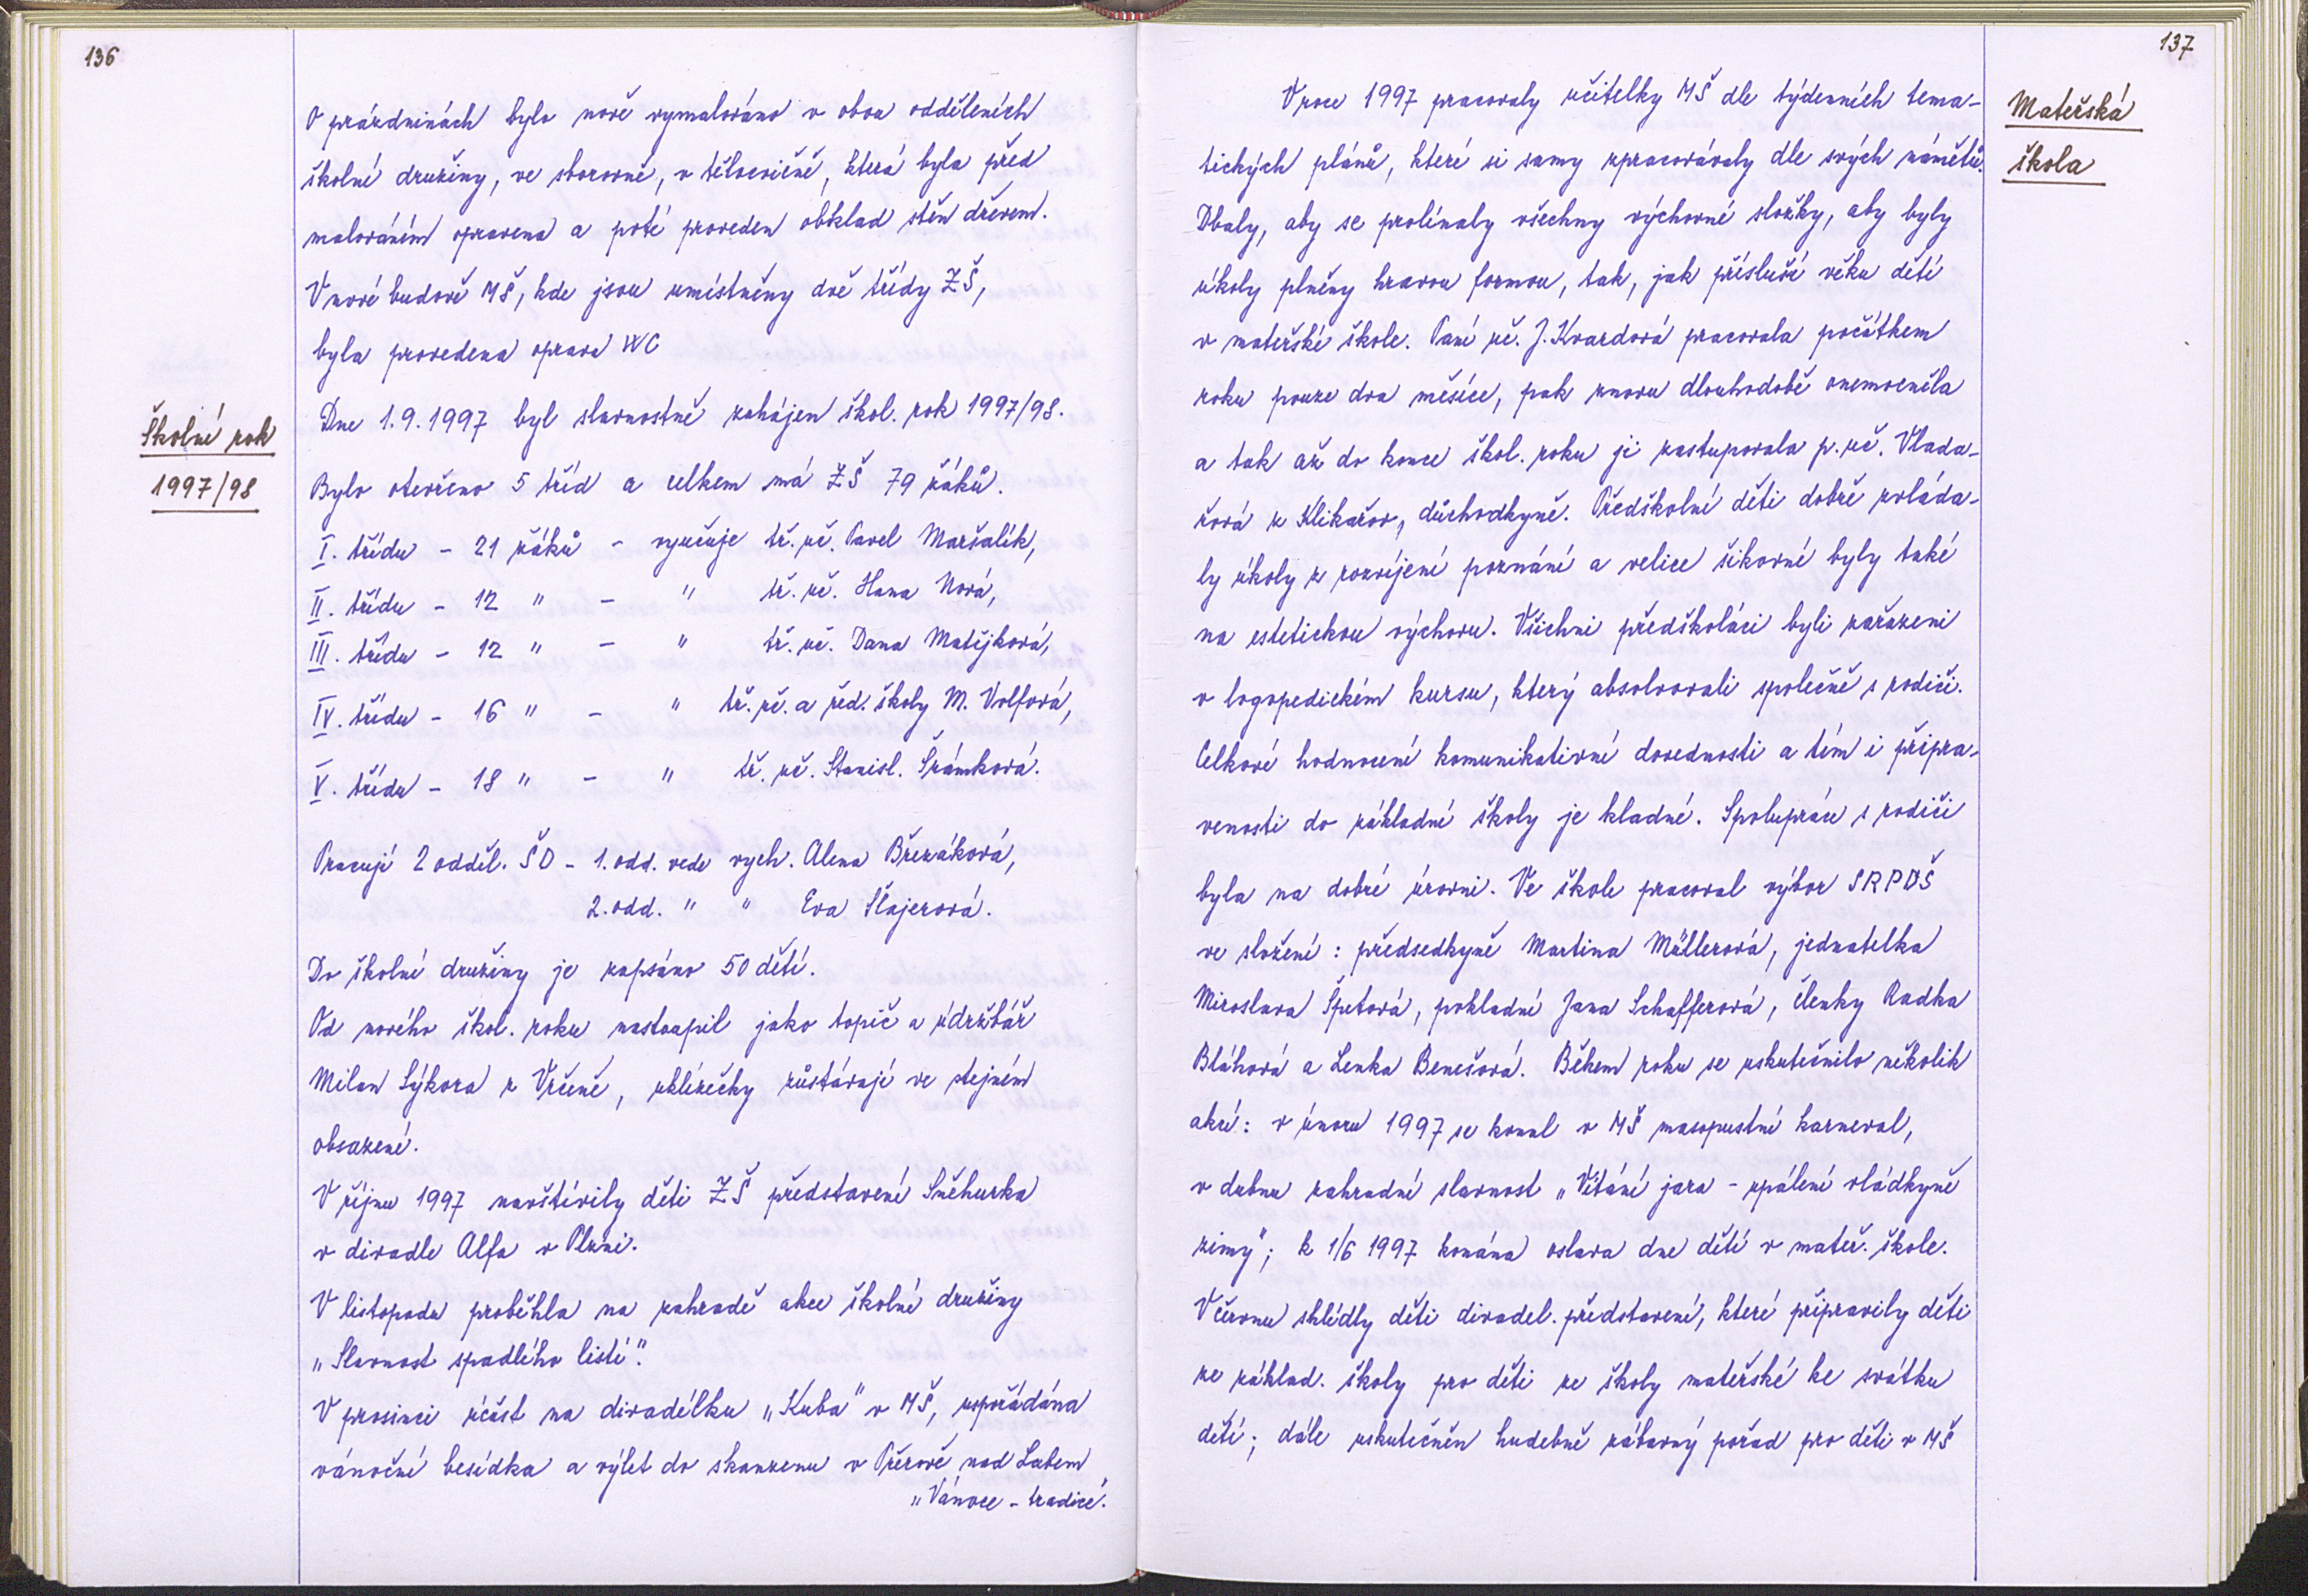 136
O prázdninách bylo nově vymalováno v obou odděleních
školní družiny, ve sborovně, v tělocvičně, která byla před
malováním opravena a poté proveden obklad stěn dřevem.
V nové budově MŠ, kde jsou umístněny dvě třídy ZŠ,
byla provedena oprava WC
Školní rok
1997/98
Dne 1.9.1997 byl slavnostně zahájen škol. rok 1997/98.
Bylo otevřeno 5 tříd a celkem má ZŠ 79 žáků.
I. třídu - 21 žáků - vyučuje tř. uč. Pavel Maršalík,
II. třídu - 12 " - " tř. uč. Hana Nová,
III. třídu - 12 " - " tř. uč. Dana Matějková,
IV. třídu - 16 " - " tř. uč. a řed. školy M. Volfová,
V. třídu - 18 " - " tř. uč. Stanisl. Šrámková.
Pracují 2 odděl. ŠD - 1. odd. vede vych. Alena Březáková,
2. odd. " " Eva Šlajerová.
Do školní družiny je zapsáno 50 dětí.
Od nového škol. roku nastoupil jako topič a údržbář
Milan Sýkora z Vrčeně, uklízečky zůstávají ve stejném
obsazení.
V říjnu 1997 navštívily děti ZŠ představení Sněhurka
v divadle Alfa v Plzni.
V listopadu proběhla na zahradě akce školní družiny
„Slavnost spadlého listí".
V prosinci účast na divadélku „Kuba" v MŠ, uspořádána
vánoční besídka a výlet do skanzenu v Přerově nad Labem
„Vánoce - tradice".
137
Mateřská
škola
V roce 1997 pracovaly učitelky MŠ dle týdenních tema-
tických plánů, které si samy zpracovávaly dle svých námětů.
Dbaly, aby se prolínaly všechny výchovné složky, aby byly
úkoly plněny hravou formou, tak, jak přísluší věku dětí
v mateřské škole. Paní uč. J. Kvardová pracovala počátkem
roku pouze dva měsíce, pak znovu dlouhodobě onemocněla
a tak až do konce škol. roku ji zastupovala p. uč. Vlada-
řová z Klikařov, důchodkyně. Předškolní děti dobře zvláda-
ly úkoly z rozvíjení poznání a velice šikovné byly také
na estetickou výchovu. Všichni předškoláci byli zařazeni
v logopedickém kursu, který absolvovali společně s rodiči.
Celkové hodnocení komunikativní dovednosti a tím i připra-
venosti do základní školy je kladné. Spolupráce s rodiči
byla na dobré úrovni. Ve škole pracoval výbor SRPDŠ
ve složení: předsedkyně Martina Müllerová, jednatelka
Miroslava Špetová, pokladní Jana Schafferová, členky Radka
Bláhová a Lenka Benešová. Během roku se uskutečnilo několik
akcí: v únoru 1997 se konal v MŠ masopustní karneval,
v dubnu zahradní slavnost „Vítání jara - upálení vládkyně
zimy"; k 1/6 1997 konána oslava dne dětí v mateř. škole.
V červnu shlédly děti divadel. představení, které připravily děti
ze základ. školy pro děti ze školy mateřské ke svátku
dětí; dále uskutečněn hudebně zábavný pořad pro děti v MŠ